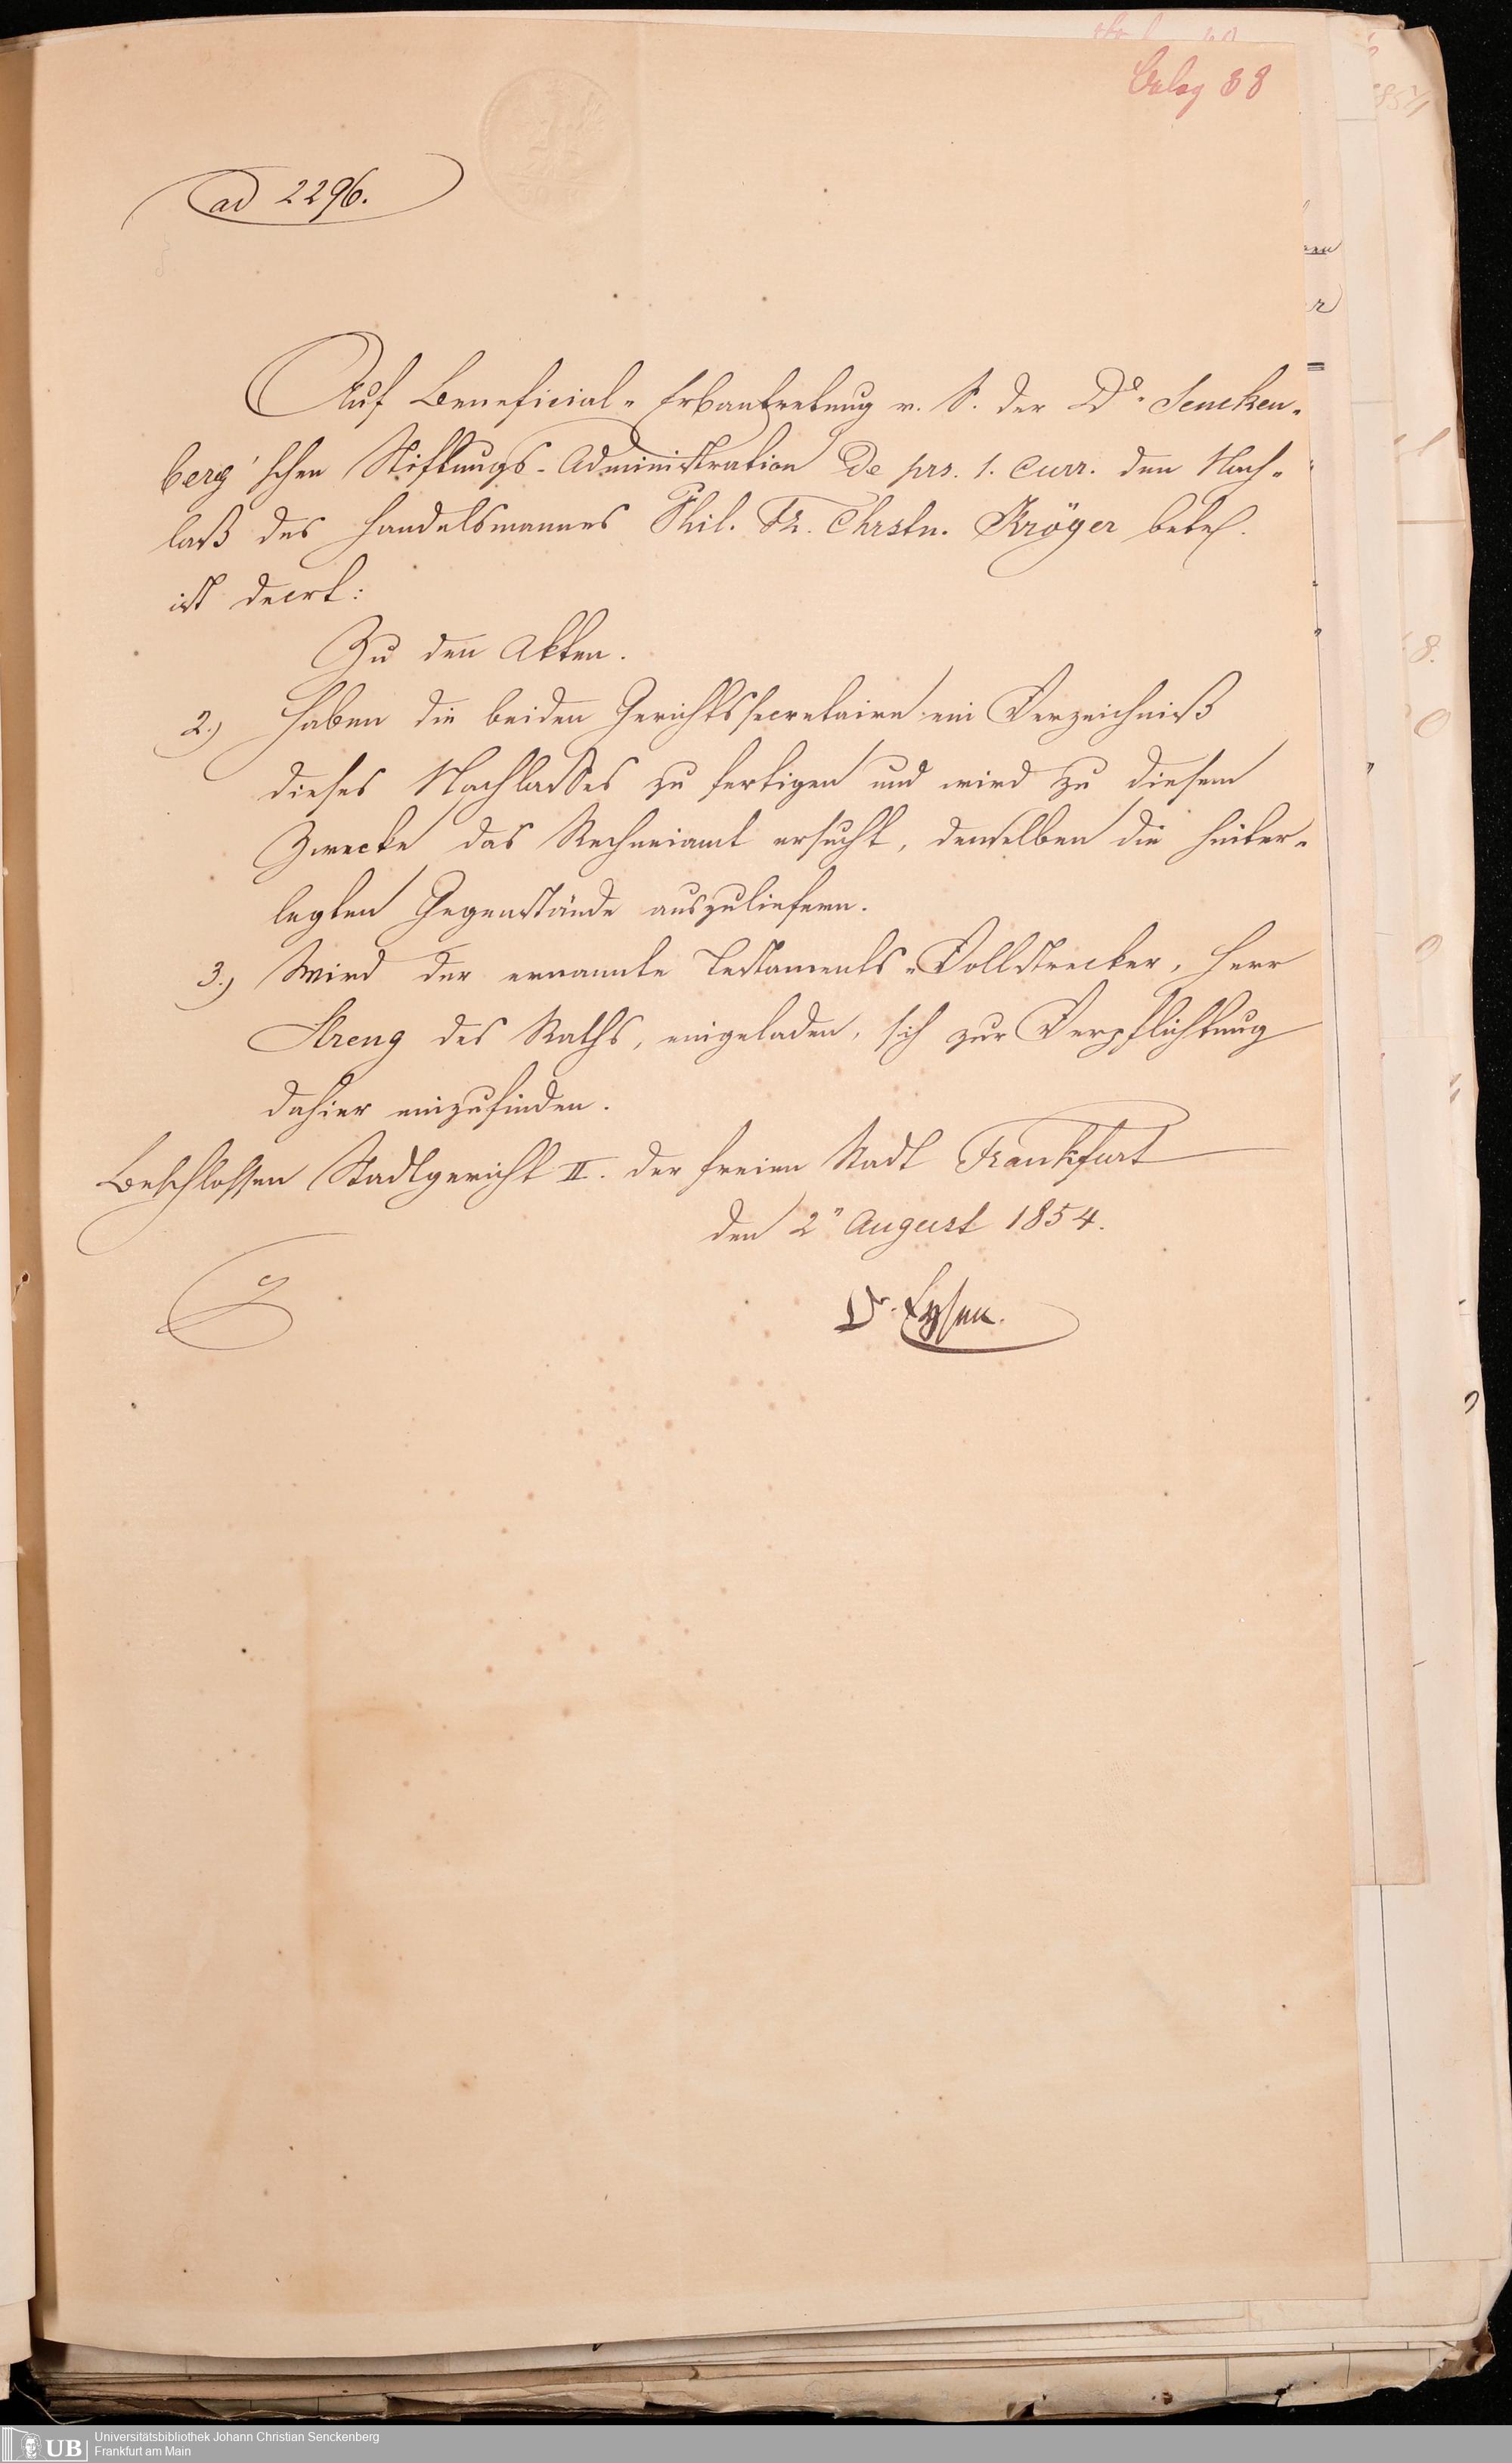 Belag 88
ad 2296.
Auf Beneficial-Erbantretung v. S. der Dr. Sencken-
berg'schen Stiftungs-Administration de prs. 1. curr. den Nach-
laß des Handelsmannes Phil. Fr. Chrstn. Kröger betr.
ist decrt:
Zu den Akten.
2.) Haben die beiden Gerichtssecretaire ein Verzeichniß
dieses Nachlasses zu fertigen und wird zu diesem
Zwecke das Rechneiamt ersucht, denselben die hinter-
legten Gegenstände auszuliefern.
3.) Wird der ernannte Testaments-Vollstrecker, Herr
Streng des Raths, eingeladen, sich zur Verpflichtung
dahier einzufinden.
Beschlossen Stadtgericht II. der freien Stadt Frankfurt
den 2n August 1854.
Dr. Eysen.
UB Universitätsbibliothek Johann Christian Senckenberg
Frankfurt am Main